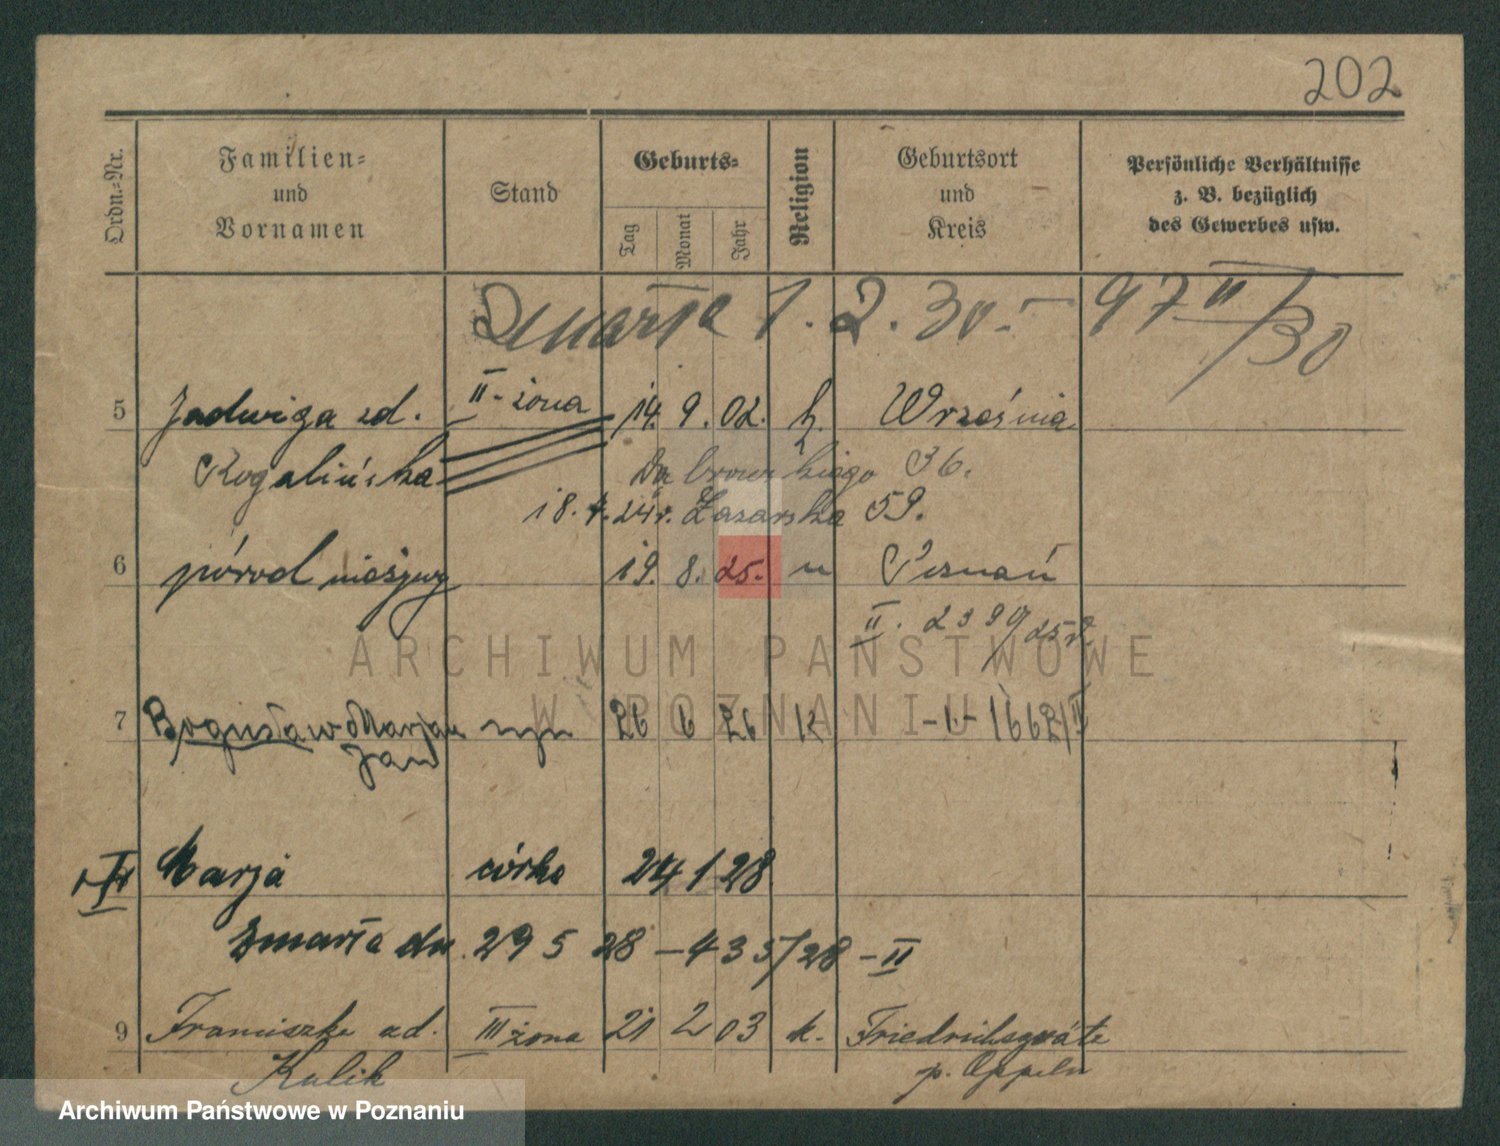 202
Ordn.-Nr.
Familien-
und
Vornamen
Stand
Geburts-
Tag
Monat
Jahr
Religion
Geburtsort
und
Kreis
Persönliche Verhältnisse
z. B. bezüglich
des Gewerbes usw.
Zmarła 1. 2. 30. - 97 II/30
5 Jadwiga zd. II-żona 14. 9. 02. k. Września
Rogalińska Dąbrowskiego 36.
18. 4. 24r. Łazarska 59.
6 poród nieżywy 19. 8. 25. " Poznań
II. 2399/25r.
7 Bogusław Marjan syn 26 6 26 k - " - 1662/II
Jan
Marja córka 24 1 28
Zmarła dn. 29 5 28 - 435/28 - II
9 Franciszka zd. III żona 21 2 03 k. Friedrichsgräte
Kulik p. Oppeln
ARCHIWUM PAŃSTWOWE
W POZNANIU
Archiwum Państwowe w Poznaniu